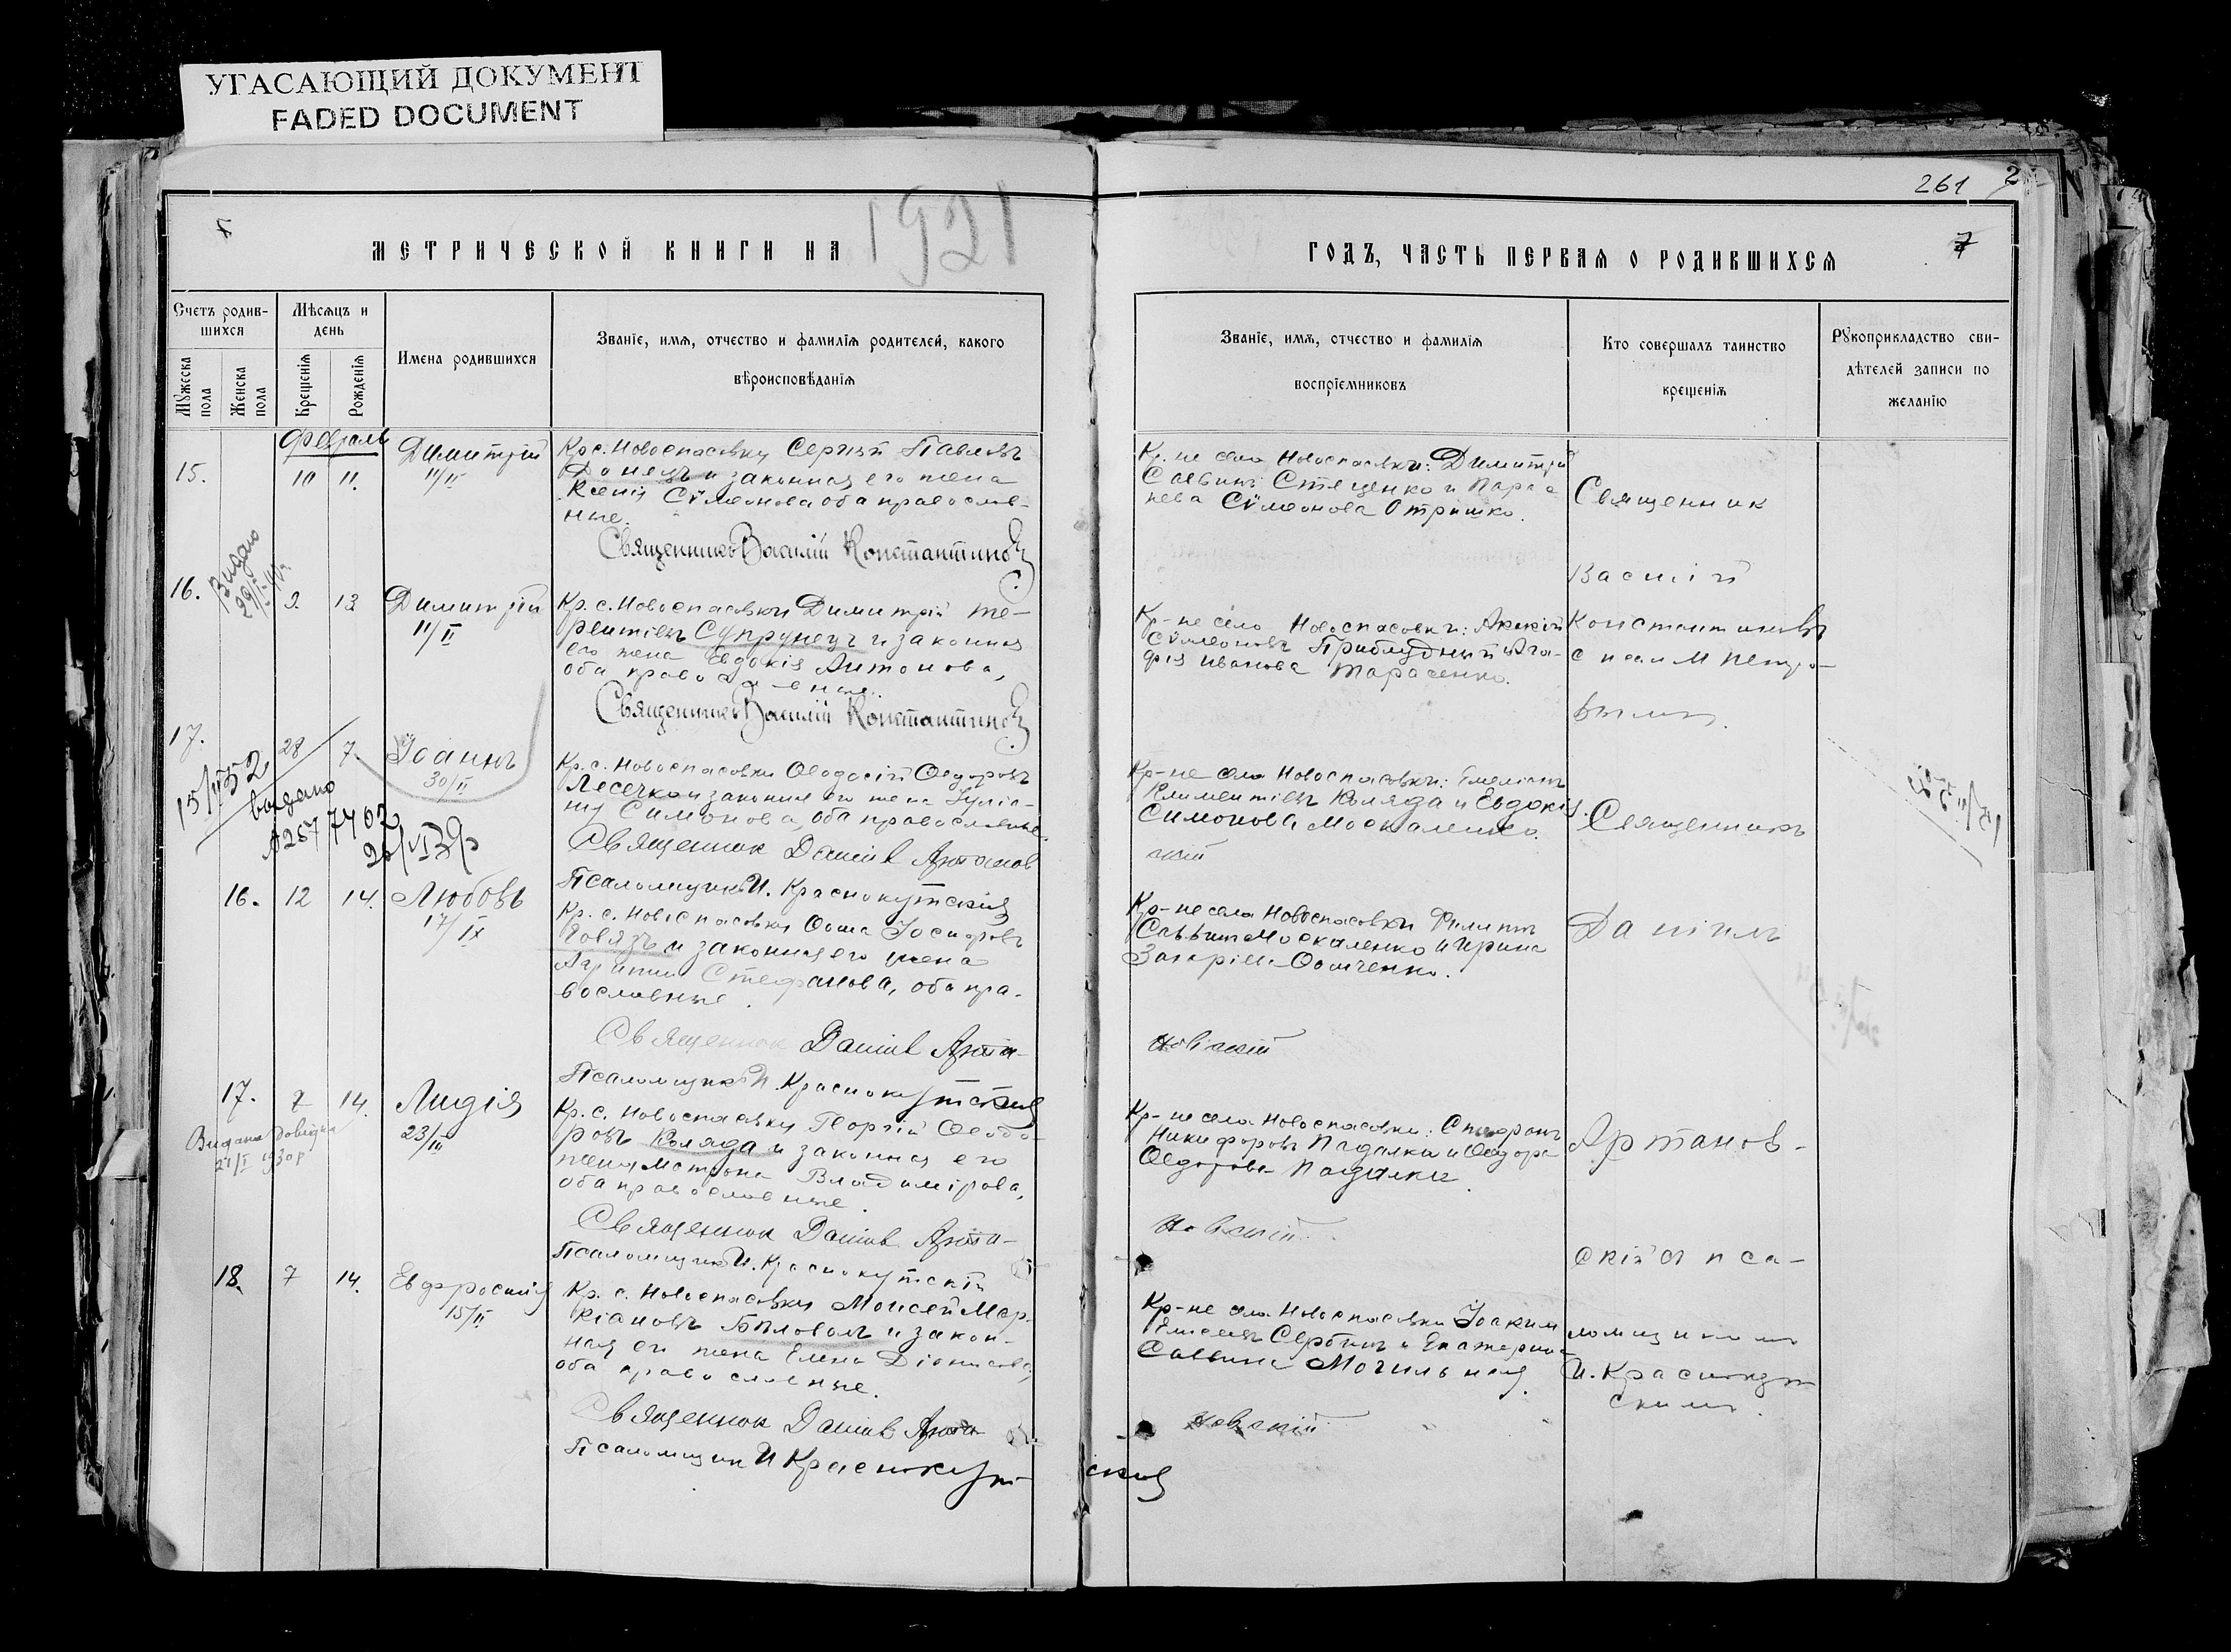 УГАСАЮЩИЙ ДОКУМЕНТ
FADED DOCUMENT
261
МЕТРИЧЕСКОЙ КНИГИ НА 1921
ГОДЪ, ЧАСТЬ ПЕРВАЯ О РОДИВШИХСЯ
7
Счетъ родив-
шихся
Мужеска пола
Женска пола
Мѣсяцъ и
день
Крещенія
Рожденія
Имена родившихся
Званіе, имя, отчество и фамилія родителей, какого
вѣроисповѣданія
Званіе, имя, отчество и фамилія
воспріемниковъ
Кто совершалъ таинство
крещенія
Рукоприкладство сви-
дѣтелей записи по
желанію
Февраль
15.
10
11.
Димитрій
11/II
Кр. с. Новоспасовки Сергѣй Павловъ
Донецъ и законная его жена
Ксенія Сѵмеонова оба православ-
ные.
Священникъ Василій Константиновъ
Кр-не села Новоспасовки: Димитрій
Саввинъ Стеценко и Параске-
Сѵмеонова Отришко.
Священник
Василій
Константиновъ
с псал М Петро-
вымъ.
16.
Видано
9.
13
Димитрій
11/II
Кр. с. Новоспасовки Димитрій Те-
рентіевъ Супрунецъ и законная
его жена Евдокія Антонова,
оба православные.
Священникъ Василій Константиновъ
Кр-не село Новоспасовки:
Сѵмеоновъ Приблудный и Ага-
фія Иванова Тарасенко.
17.
28
7.
Іоаннъ
30/II
15/II 52
выдано
Кр. с. Новоспасовки Ѳеодосій Ѳедоровъ
Лесечко и законная его жена Іуліа-
Симонова, оба православные.
Священник Даниил Артанов
ский
Псаломщикъ И. Краснокутский
Кр-не села Новоспасовки: Емеліанъ
Климентіевъ Коляда и Евдокія
Симонова Москаленко.
Священникъ
Даніилъ
Артанов-
скій и пса-
ломщикомъ
И. Краснокут-
скимъ.
16.
12
14.
Любовь
17/IX
Кр. с. Новоспасовки Ѳома Іосифовъ
и законная его жена
Стефанова, оба пра-
вославные.
Священник Даниил Арта-
новский
Псаломщикъ И. Краснокутский
Кр-не села Новоспасовки Филиппъ
Саввинъ Москаленко и Ирина
17.
7
14.
Лидія
23/III
Видана довідка
21/I 1930 р
Кр. с. Новоспасовки Георгій Ѳеодо-
ровъ Коляда и законная его
жена Матрона Владимірова,
оба православные.
Священник Даниил Арта-
новский
Псаломщикъ И. Краснокутский
Кр-не села Новоспасовки: Спиридонъ
Никифоровъ Падалка и Ѳеодора
Ѳедорова Падалка.
18.
7
14.
Евфросинія
15/II
Кр. с. Новоспасовки Моисей Мар-
кіановъ Бѣловолъ и закон-
ная его жена Елена Діонисова,
оба православные.
Священник Даниил Арта-
новский
Псаломщик И Краснокут-
ский
Кр-не села Новоспасовки Іоаким
Елисеевъ Сербинъ и Екатерина
Саввина Могильная.